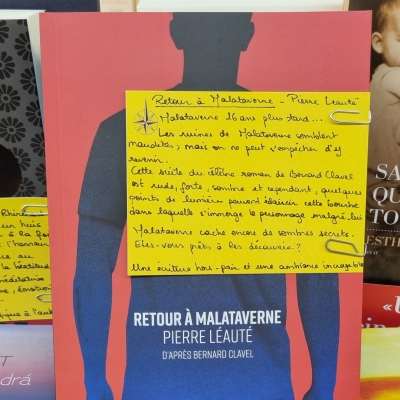 Retour à Malataverne - Pierre Léauté
Malataverne 16 ans plus tard...
Les ruines de Malataverne semblent
maudites ; mais on ne peut s'empêcher d'y
revenir.
Cette suite du célèbre roman de Bernard Clavel
est rude, forte, sombre et cependant, quelques
points de lumière peuvent éclaircir cette
dans laquelle s'immerge le personnage malgré lui
Malataverne cache encore de sombres secrets.
Êtes-vous prêts à les découvrir ?
Une écriture hors-pair et une ambiance incroyable
RETOUR À MALATAVERNE
PIERRE LÉAUTÉ
D'APRÈS BERNARD CLAVEL
un huis
à la fo
l'horreur
SA
QU
TO
ESTH